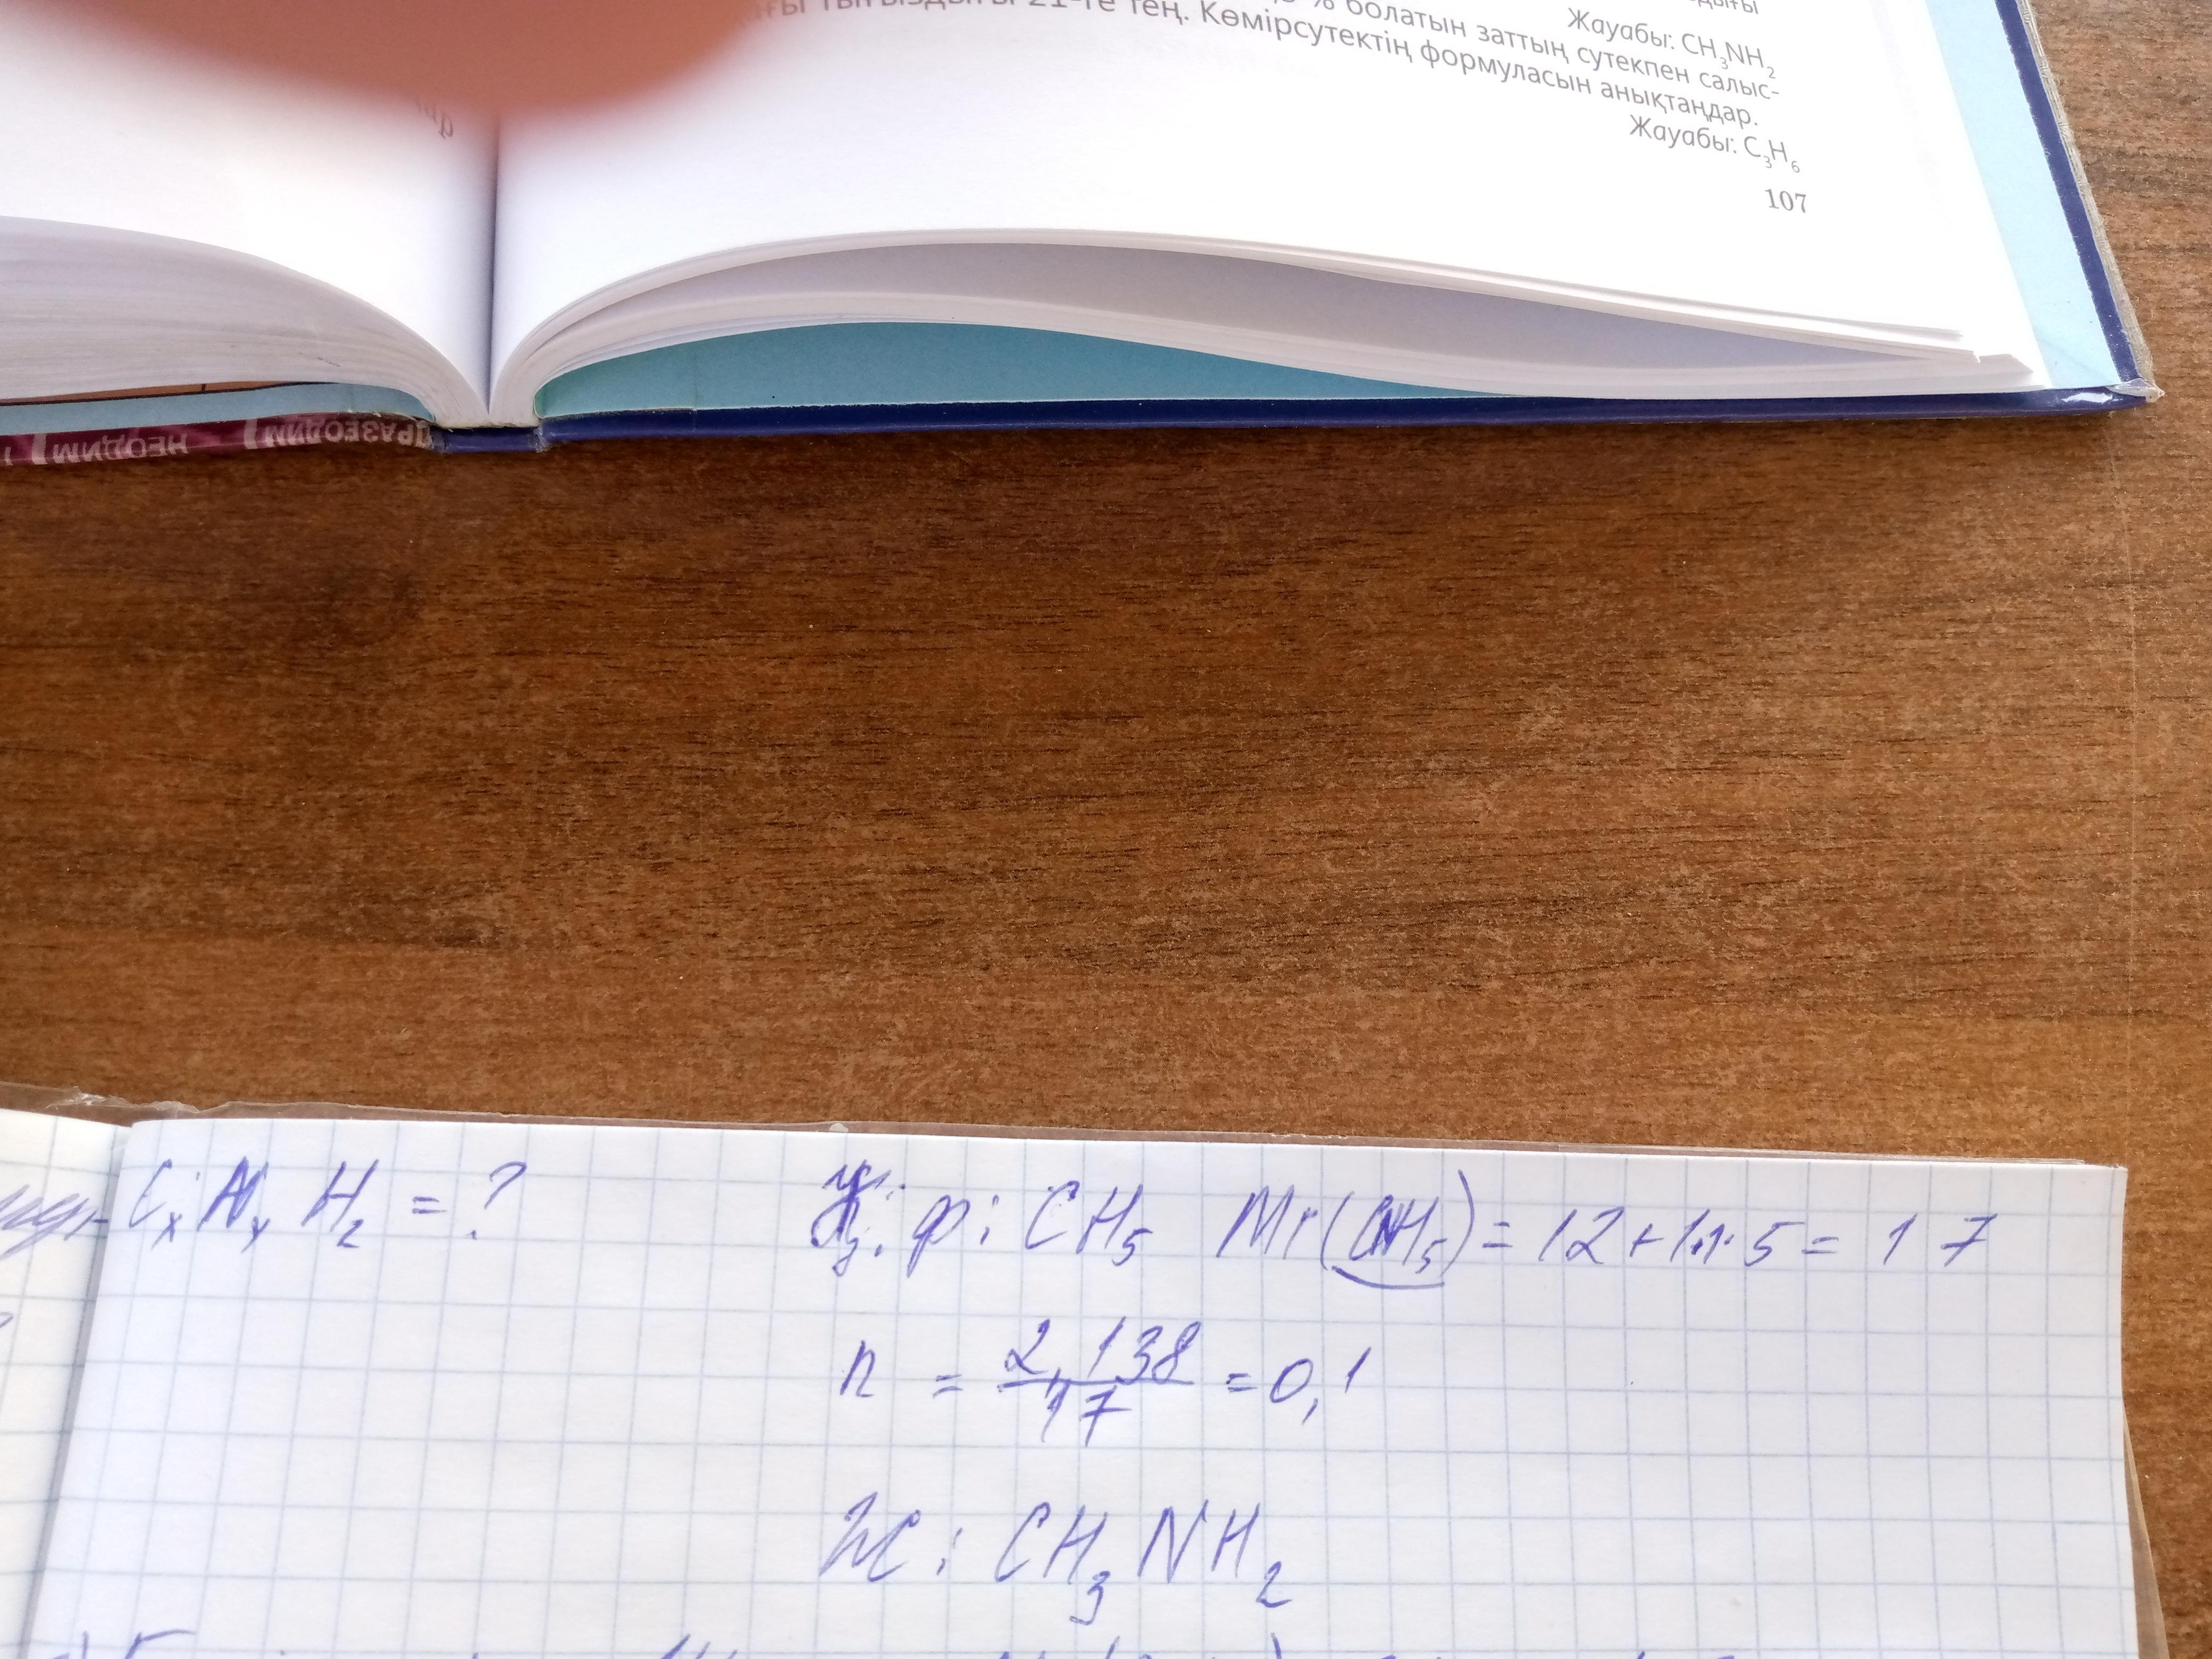 Жауабы: CH₃NH₂
% болатын заттың сутекпен салыс-
тығыздығы 21-ге тең. Көмірсутектің формуласын анықтаңдар.
Жауабы: C₃H₆
107
НЕОДИМ ПРАЗЕОДИМ
CₓNᵧ H₂ = ?
ф: CH₅ Mr(CNH₅) = 12+1·1·5 = 17
n = 2,138/17 = 0,1
Ж: CH₃NH₂